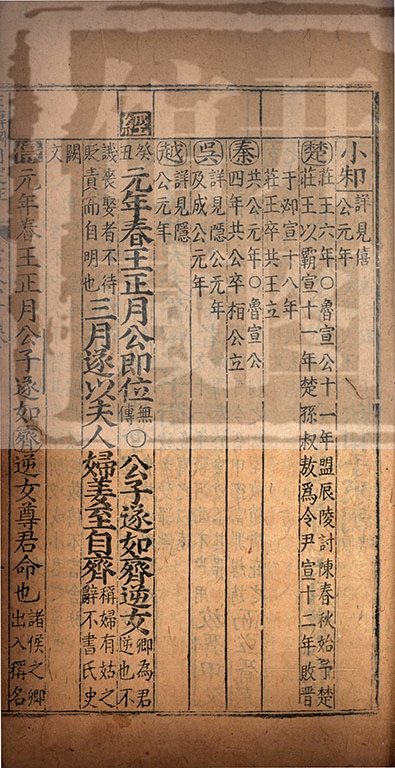 小邾詳見僖公元年
楚莊王六年○魯宣公十一年盟辰陵討陳春秋始予楚
莊王以霸宣十一年楚孫叔敖爲令尹宣十二年敗晉
于邲宣十八年
莊王卒共王立
秦共公元年○魯宣公
四年共公卒相公立
吳詳見隱公元年
及成公元年
越詳見隱
公元年
經癸丑元年春王正月公即位無傳○公子遂如齊逆女卿為君逆也不
譏喪娶者不待貶責而自明也三月遂以夫人婦姜至自齊稱婦有姑之辭不書氏史
闕文
傳元年春王正月公子遂如齊逆女尊君命也諸侯之卿出入稱名